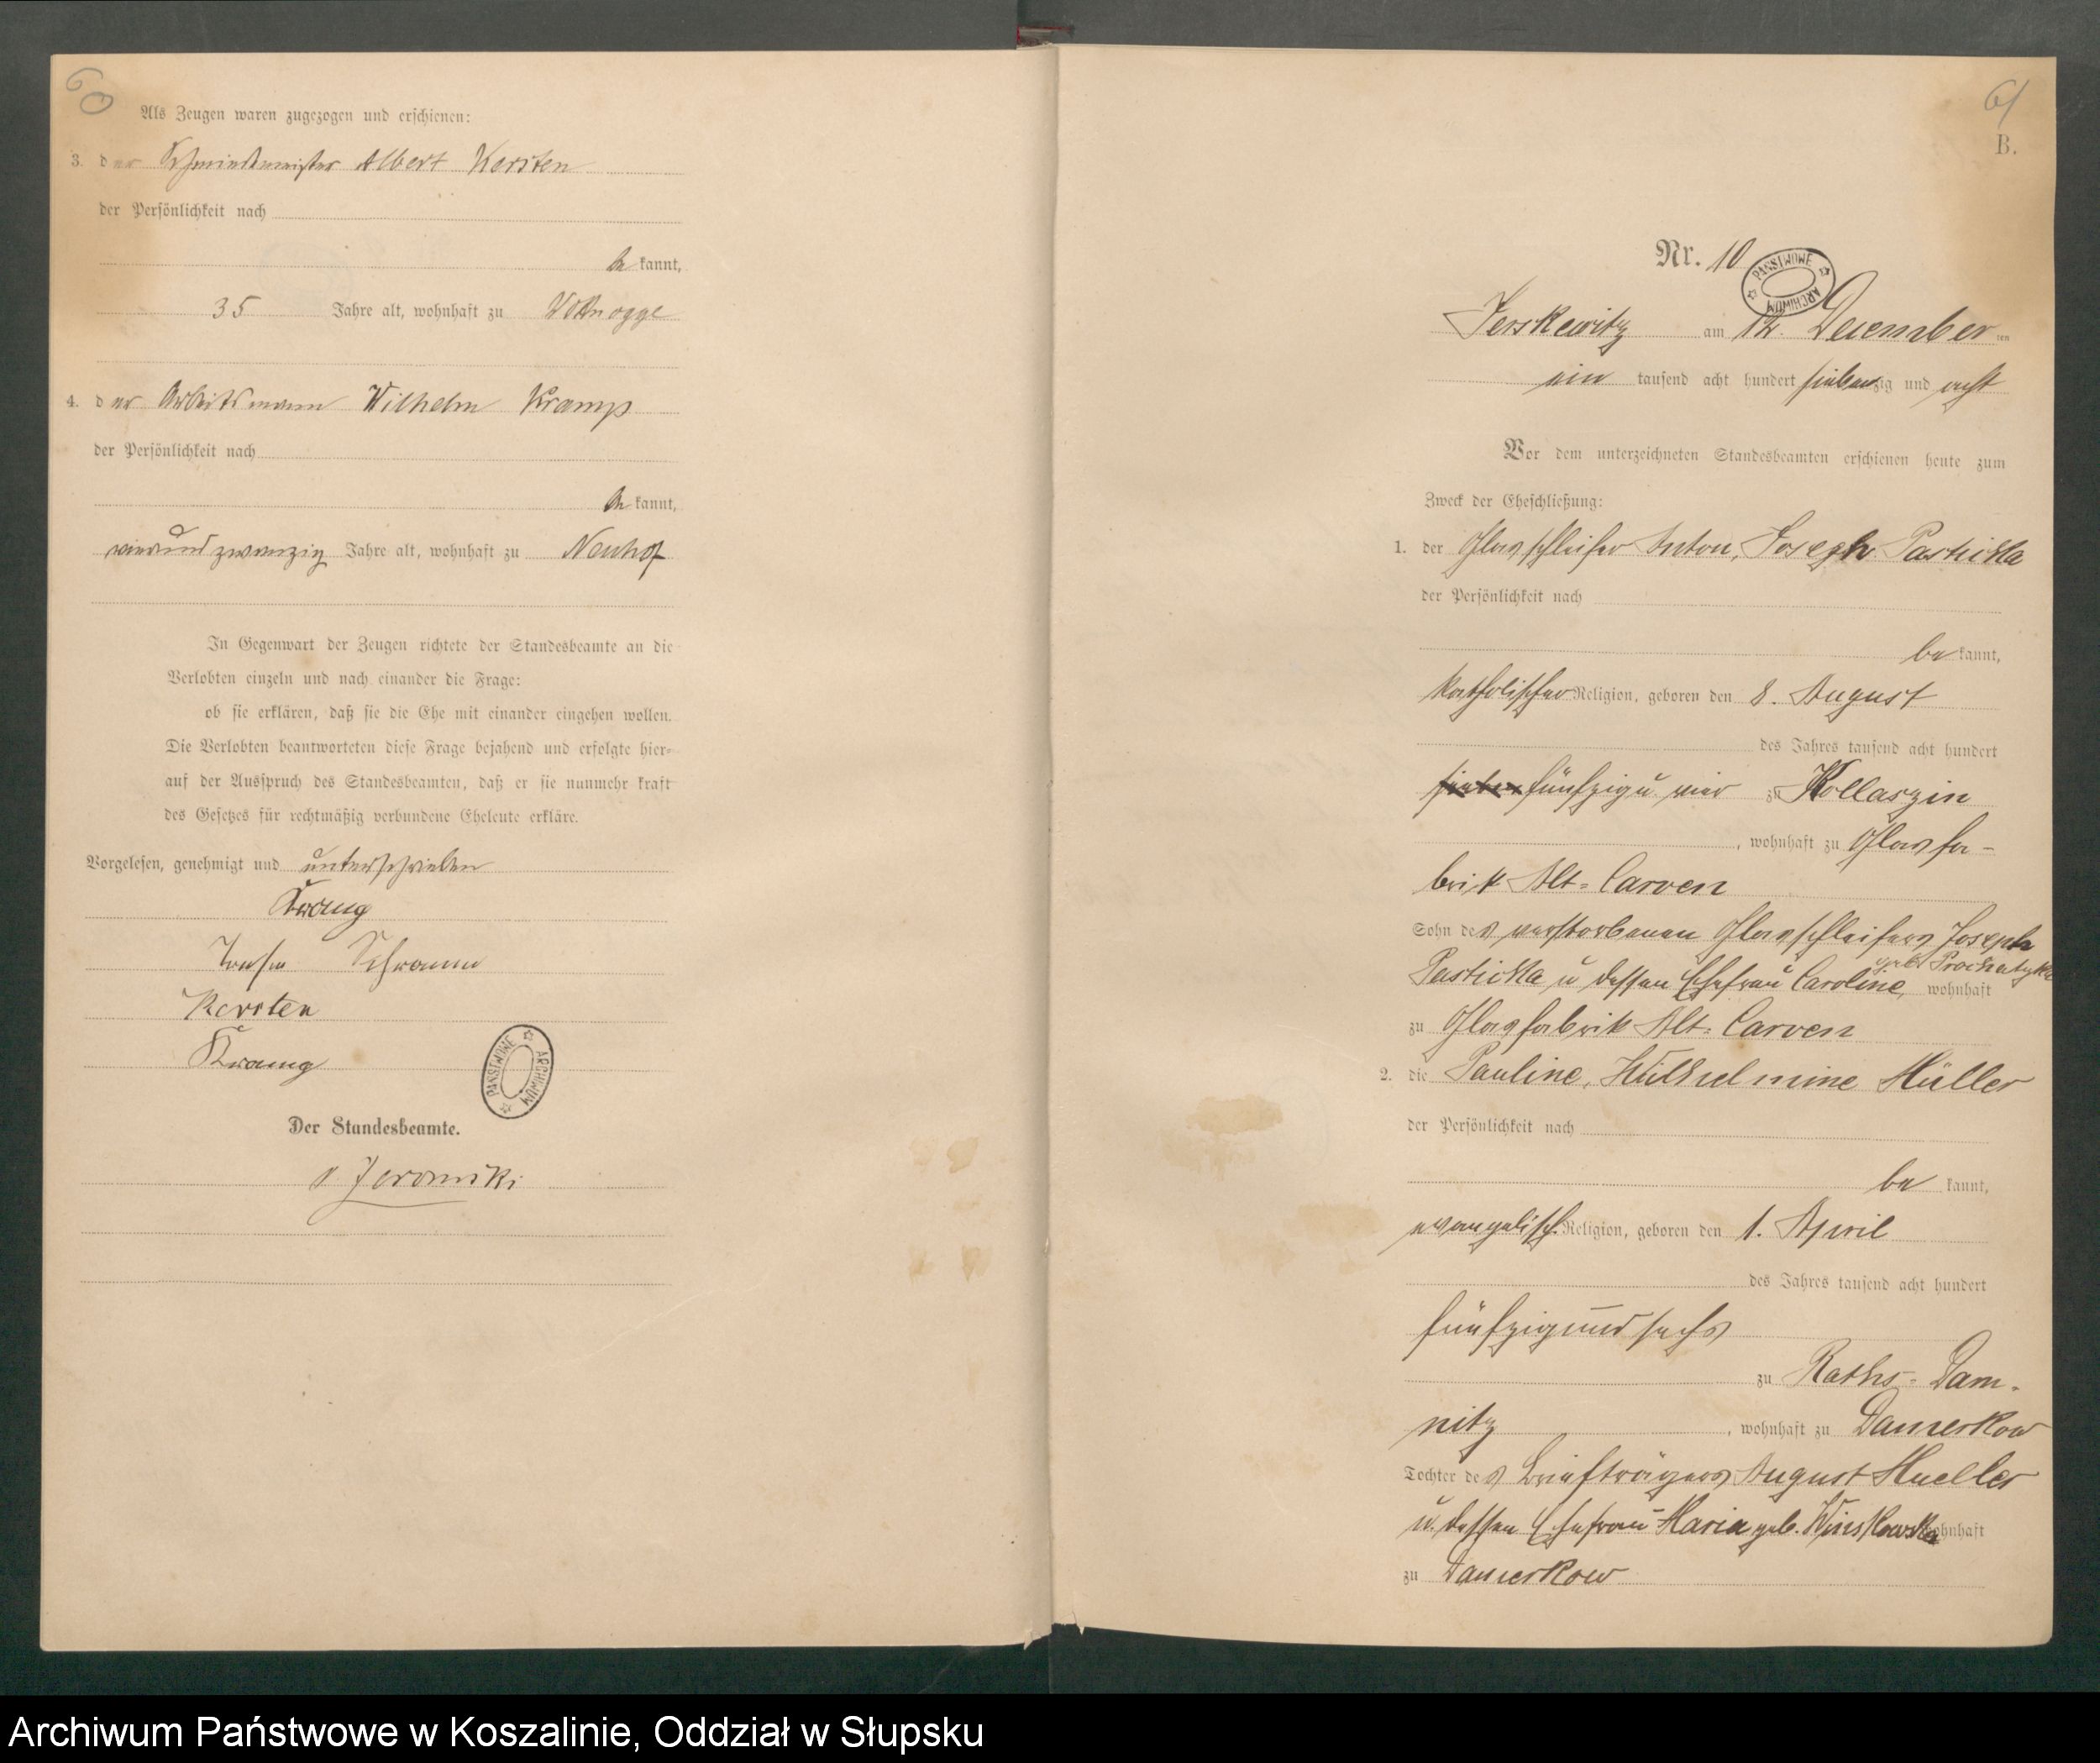 60
Als Zeugen waren zugezogen und erschienen:
3. der Schmiedemeister Albert Kersten
der Persönlichkeit nach
be kannt,
35 Jahre alt, wohnhaft zu
4. der Arbeitsmann Wilhelm Kramp
der Persönlichkeit nach
be kannt,
vierundzwanzig Jahre alt, wohnhaft zu Neuhof
In Gegenwart der Zeugen richtete der Standesbeamte an die
Verlobten einzeln und nach einander die Frage:
ob sie erklären, daß sie die Ehe mit einander eingehen wollen.
Die Verlobten beantworteten diese Frage bejahend und erfolgte hier-
auf der Ausspruch des Standesbeamten, daß er sie nunmehr kraft
des Gesetzes für rechtmäßig verbundene Eheleute erkläre.
Vorgelesen, genehmigt und unterschrieben
Kramp
Schramm
Kersten
Kramp
PAŃSTWOWE ARCHIWUM
Der Standesbeamte.
61
B.
Nr. 10
PAŃSTWOWE ARCHIWUM
Jerskewitz am 12. December ten
ein tausend acht hundert siebenzig und acht
Vor dem unterzeichneten Standesbeamten erschienen heute zum
Zweck der Eheschließung:
1. der Glasschleifer Anton, Joseph Pastirka
der Persönlichkeit nach
be kannt,
katholischer Religion, geboren den 8. August
des Jahres tausend acht hundert
sieben fünfzig u vier zu Kollaszin
, wohnhaft zu Glasfa-
brik Alt-Carven
Sohn des verstorbenen Glasschleifers Joseph
Pastirka u dessen Ehefrau Caroline, geb. wohnhaft
zu Glasfabrik Alt-Carven
2. die Pauline, Wilhelmine Müller
der Persönlichkeit nach
be kannt,
evangelisch. Religion, geboren den 1. April
des Jahres tausend acht hundert
fünfzig und sechs
zu Raths-Dam-
nitz , wohnhaft zu Damerkow
Tochter des Briefträgers August Mueller
u. dessen Ehefrau Maria geb. wohnhaft
zu Damerkow
Archiwum Państwowe w Koszalinie, Oddział w Słupsku